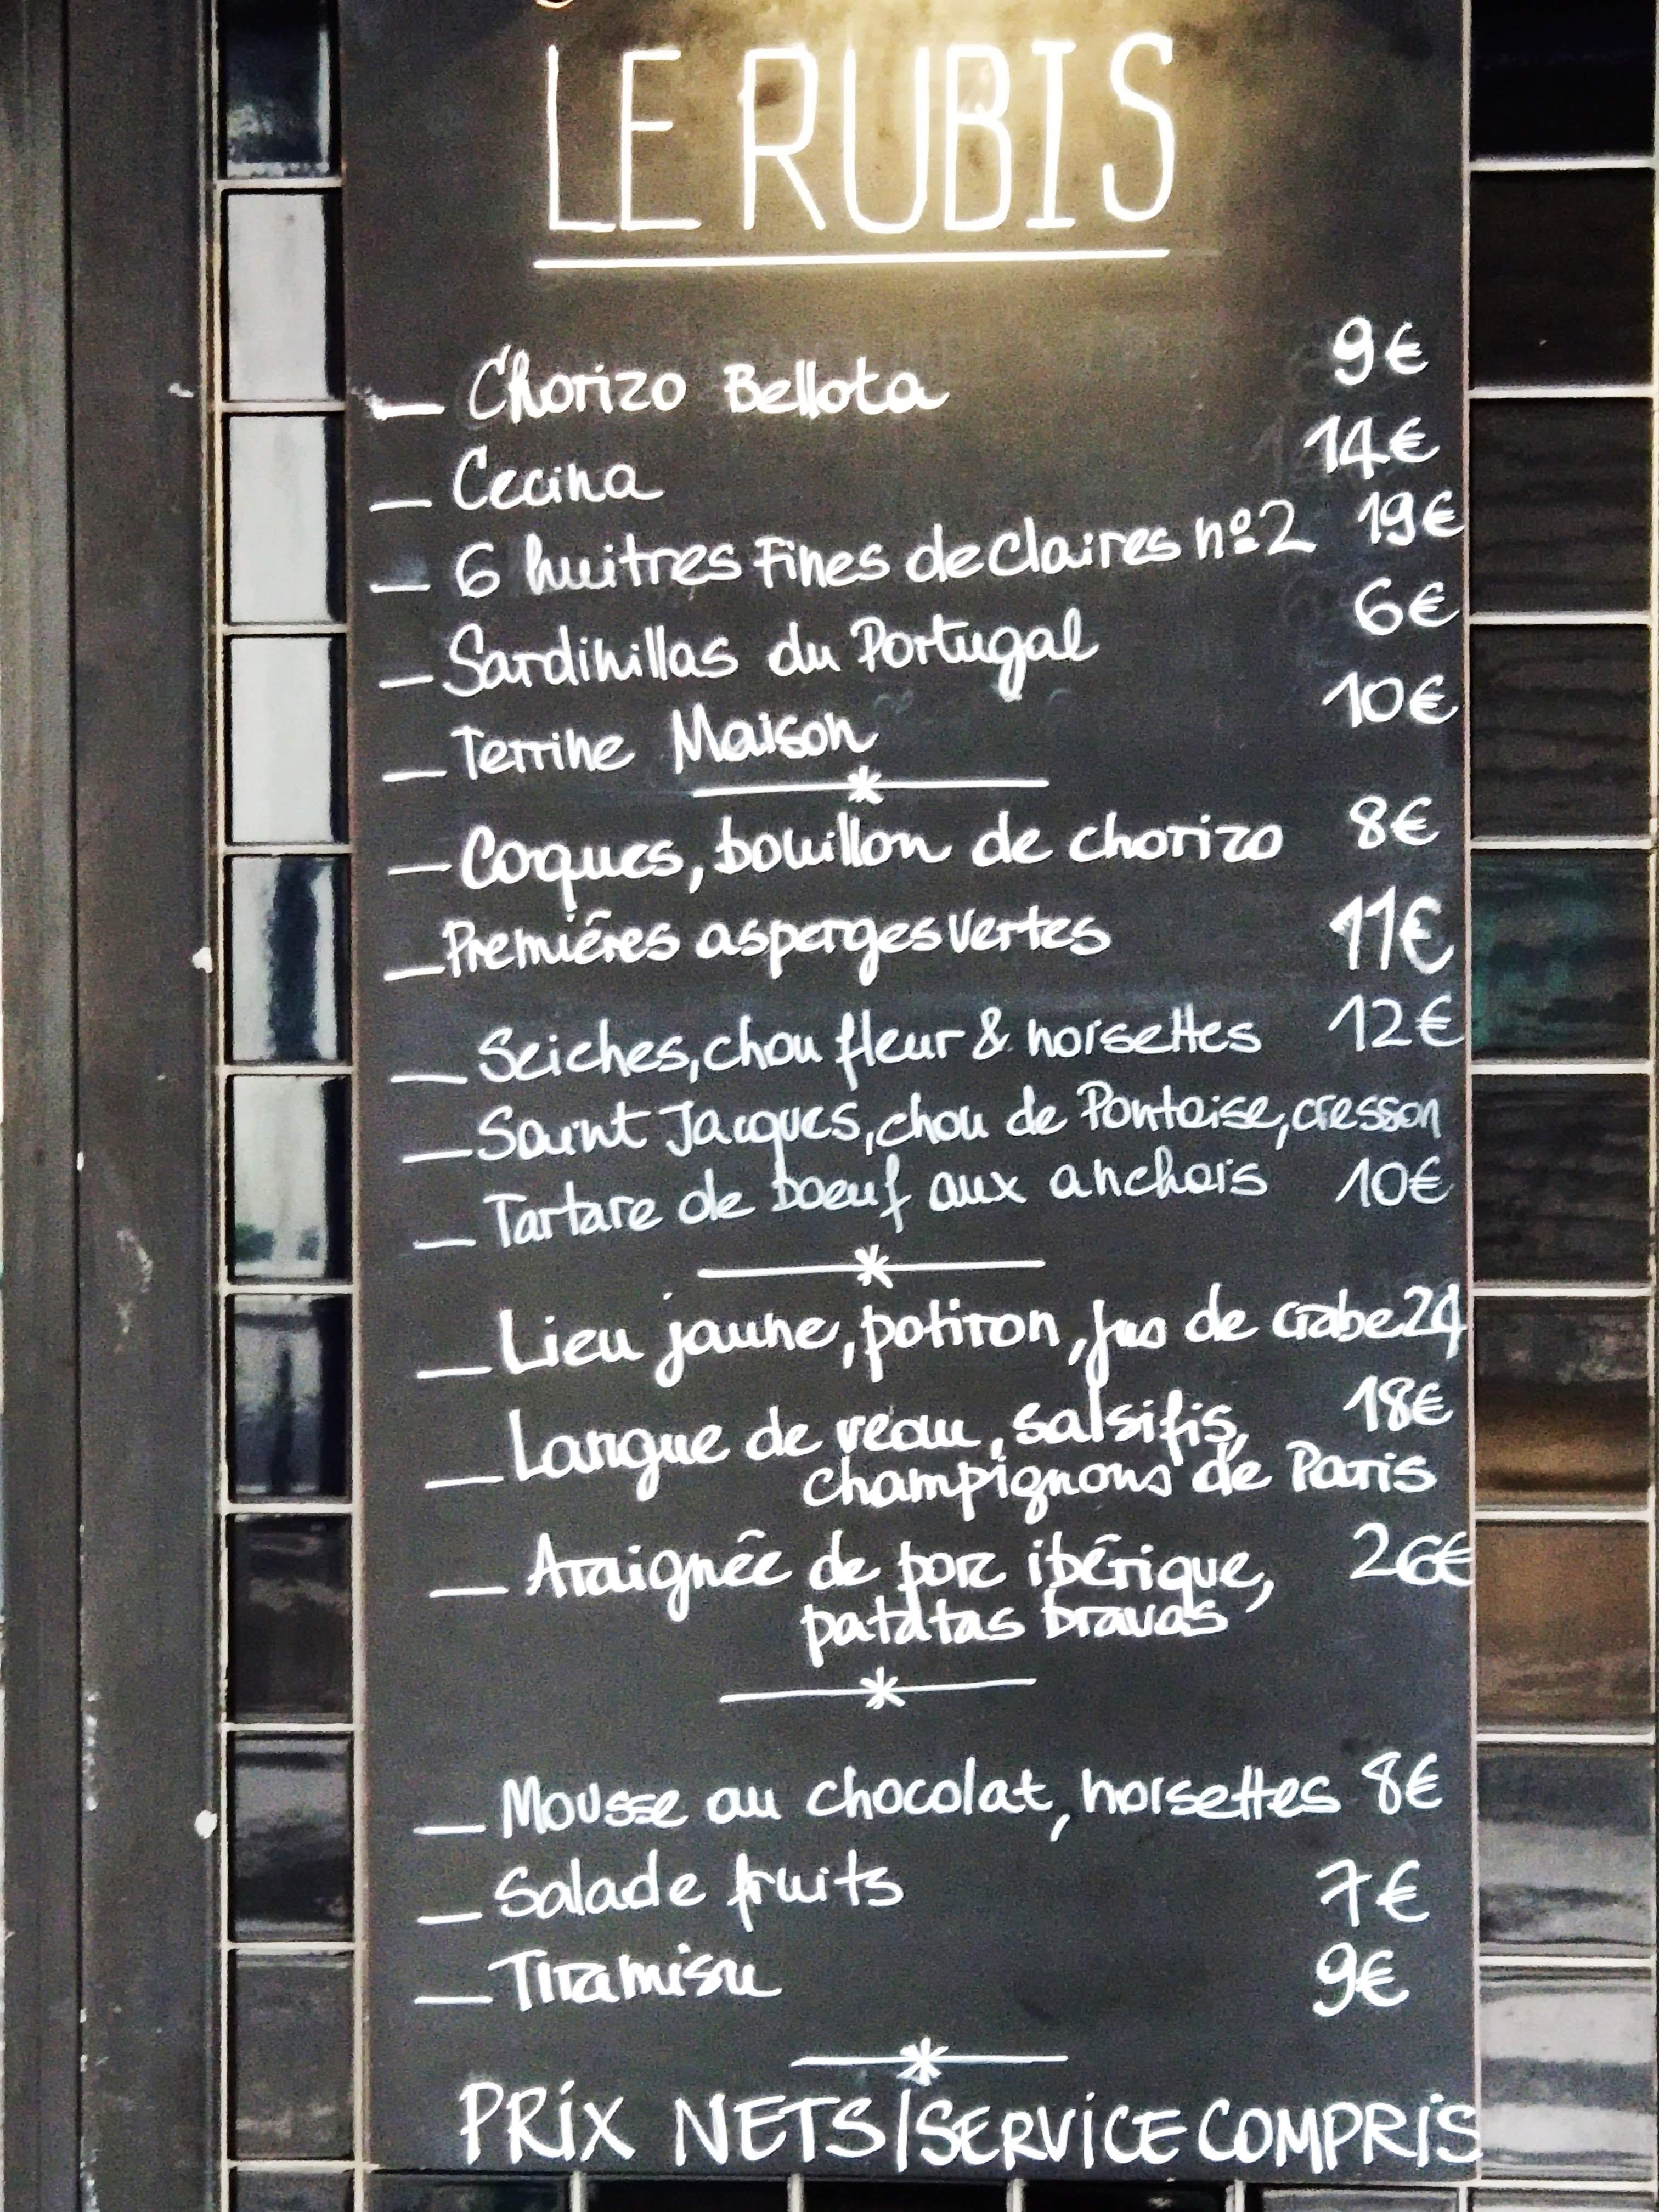 LE RUBIS
— Chorizo Bellota 9€
— Cecina 14€
— 6 huitres Fines de Claires nº2 19€
— Sardinillas du Portugal 6€
— Terrine Maison 10€
*
— Coques, bouillon de chorizo 8€
— Premières asperges vertes 11€
— Seiches, chou fleur & noisettes 12€
— Saint Jacques, chou de Pontoise, cresson
— Tartare de boeuf aux anchois 10€
*
— Lieu jaune, potiron, jus de crabe 24
— Langue de veau, salsifis, 18€
champignons de Paris
— Araignée de porc ibérique, 26€
patatas bravas
*
— Mousse au chocolat, noisettes 8€
— Salade fruits 7€
— Tiramisu 9€
*
PRIX NETS/SERVICE COMPRIS